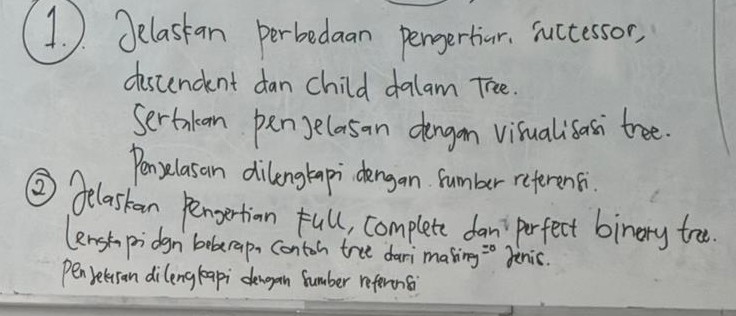 1. Jelaskan perbedaan pengertian, successor,
descendent dan child dalam Tree.
Sertakan penjelasan dengan visualisasi tree.
Penjelasan dilengkapi dengan sumber referensi.
2 Jelaskan Pengertian Full, Complete dan perfect binary tree.
Lengkapi dgn beberapa contoh tree dari masing=² Jenis.
penjelasan dilengkapi dengan sumber referensi